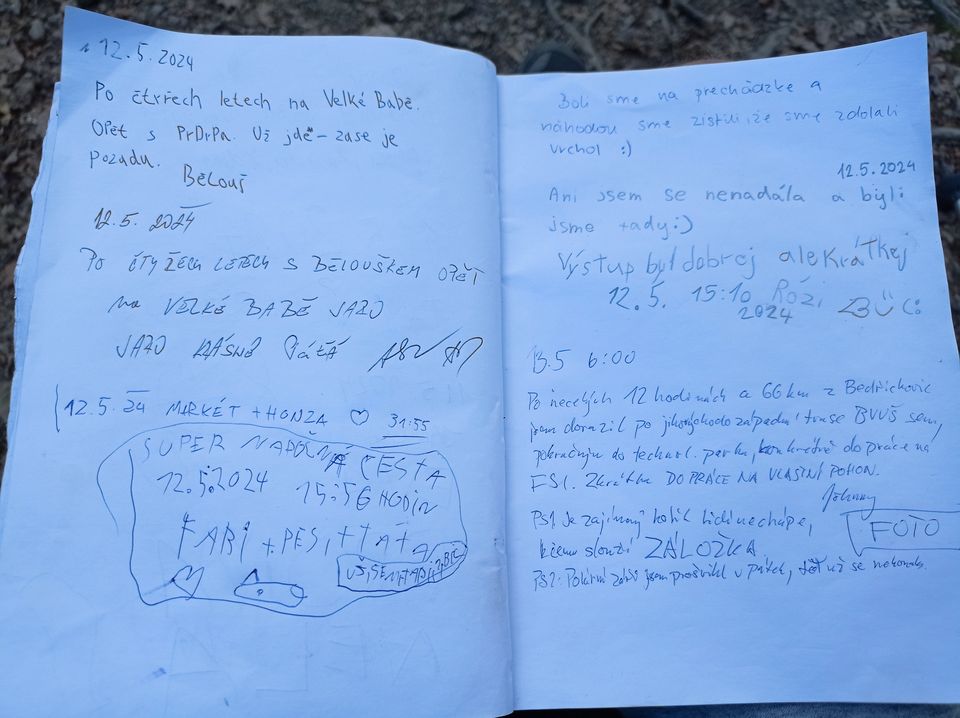 12.5.2024
Po čtyřech letech na Velké Babě.
Opět s PrDrPa. Už jde – zase je
pozadu.
Bělouš
12.5. 2024
Po čtyřech letech s Bělouškem opět
na VELKÉ BABĚ JAKO
JAKO KRÁSNÁ PÁTÁ
12.5.24 MARKÉT + HONZA ♡ 31:55
SUPER NAROČNÁ CESTA
12.5.2024 15:56 HODIN
FABI + PES, + TÁTA
Boli sme na prechádzke a
náhodou sme zistili, že sme zdolali
vrchol :)
12.5.2024
Ani jsem se nenadála a byli
jsme tady :)
Výstup byl dobrej ale krátkej
12.5. 15:10 Rózi
2024
13.5 6:00
Po necelých 12 hodinách a 66 km z Bedřichovic
jsem dorazil po jihovýchodozápadní trase BVVŠ sem,
pokračuju do technol. parku, konkrétně do práce na
FSI. Zkrátka DO PRÁCE NA VLASTNÍ POHON.
Johnny
PS1: Je zajímavý kolik lidí nechápe,
k čemu slouží ZÁLOŽKA
FOTO
PS2: jsem prošvihl v pátek, už se nekonala.